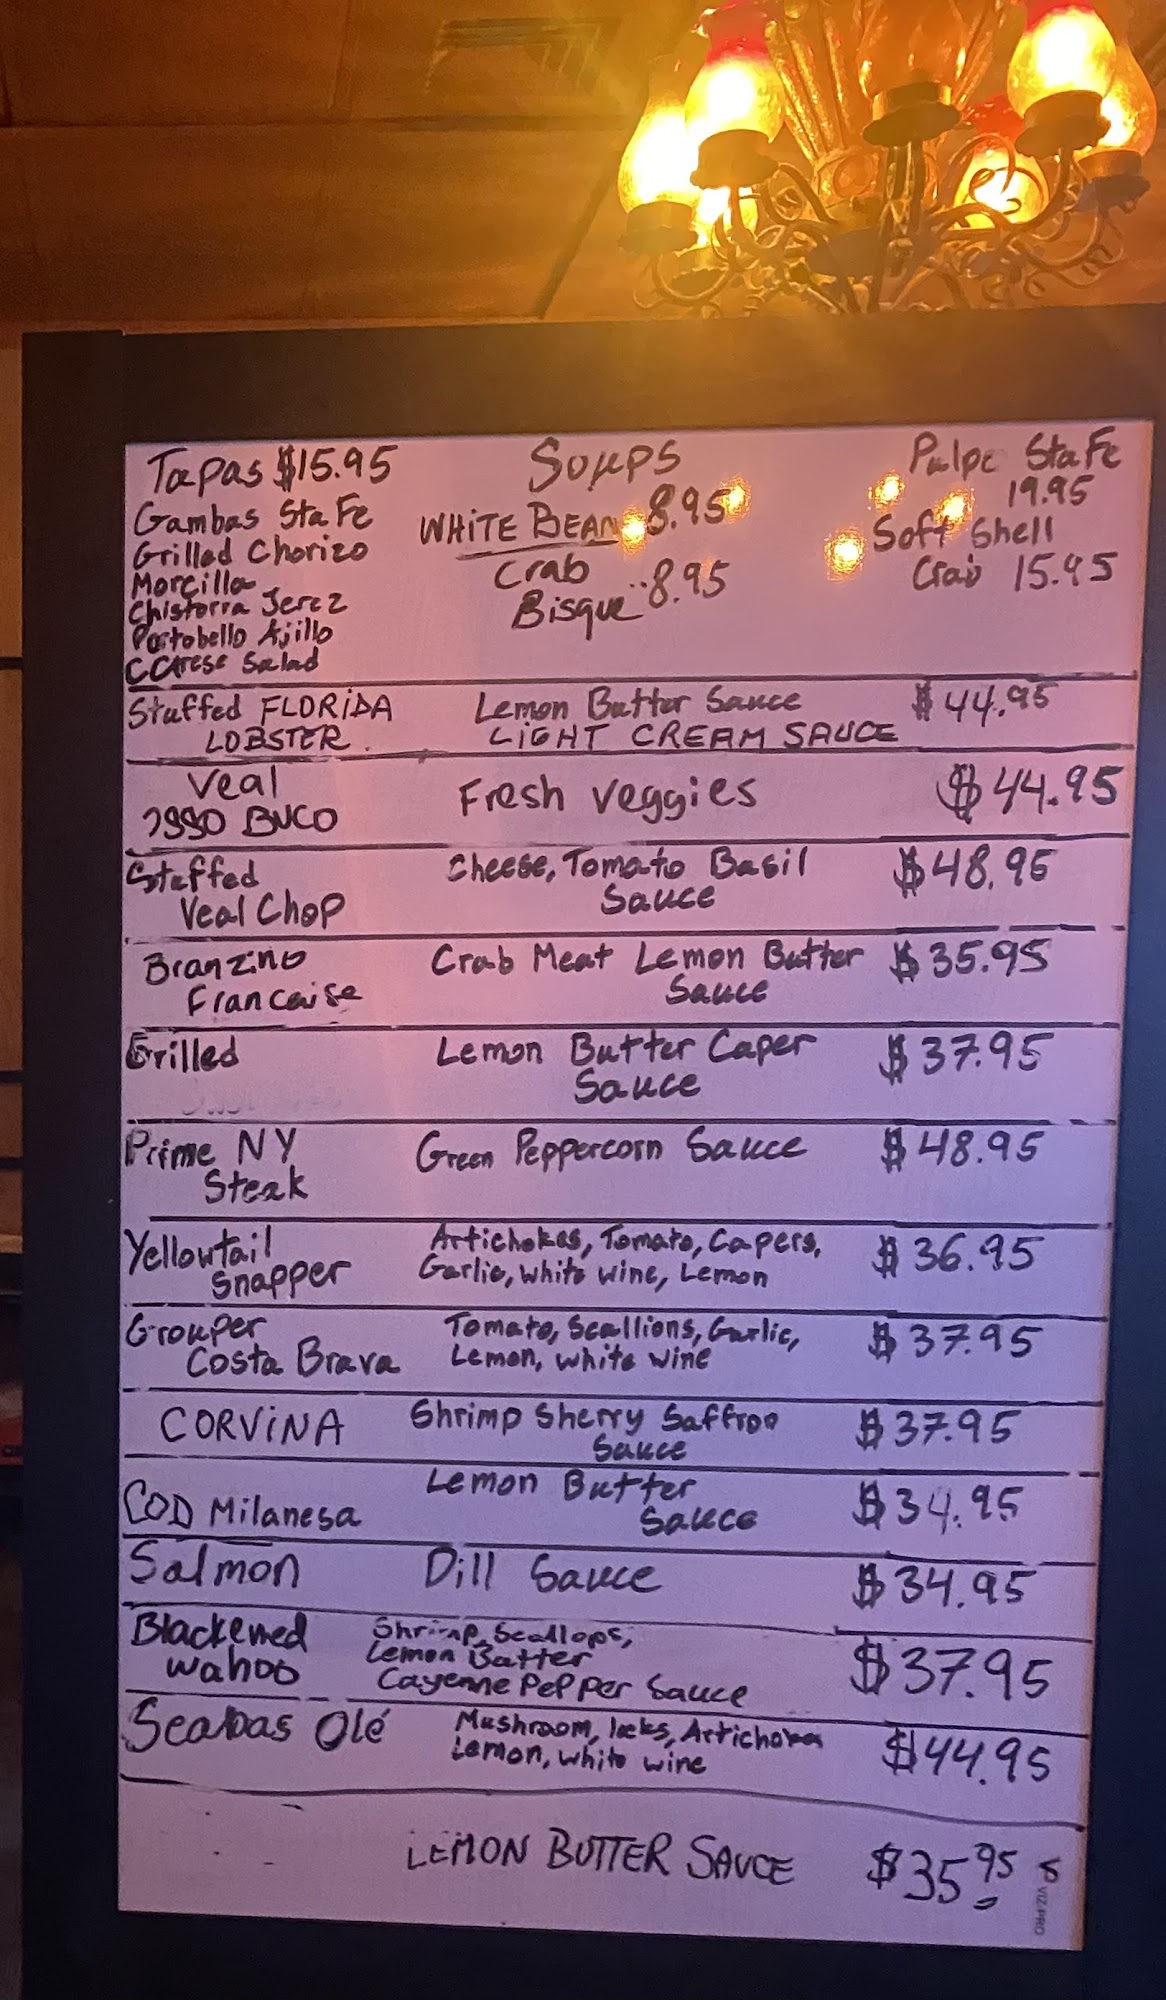 Tapas $15.95
Gambas Sta Fe
Grilled Chorizo
Morcilla
Chistorra Jerez
Portobello Ajillo
CCArese Salad
Soups
WHITE BEAN 8.95
Crab ..8.95
Bisque
Pulpo Sta Fe
19.95
Soft Shell
Crab 15.95
Stuffed FLORIDA Lemon Butter Sauce $44.95
LOBSTER. LIGHT CREAM SAUCE
Veal Fresh veggies $44.95
OSSO BUCO
Stuffed Cheese, Tomato Basil $48.95
Veal Chop Sauce
Branzino Crab Meat Lemon Butter $35.95
Francaise Sauce
Grilled Lemon Butter Caper $37.95
Sauce
Prime NY Green Peppercorn Sauce $48.95
Steak
Yellowtail Artichokes, Tomato, Capers, $36.95
Snapper Garlic, white wine, Lemon
Grouper Tomato, Scallions, Garlic, $37.95
Costa Brava Lemon, white wine
CORVINA Shrimp Sherry Saffron $37.95
Sauce
Lemon Butter
COD Milanesa Sauce $34.95
Salmon Dill Sauce $34.95
Blackened Shrimp, Scallops,
wahoo Lemon Butter $37.95
Cayenne Pepper Sauce
Seabas Olé Mushroom, leeks, Artichokes $44.95
Lemon, white wine
LEMON BUTTER SAUCE $35.95
VIZ-PRO